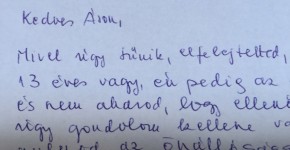 Kedves Áron,
Mivel úgy tűnik, elfelejtetted,
13 éves vagy, én pedig az
és nem akarod, hogy ellenő
úgy gondolom kellene va
az önálló